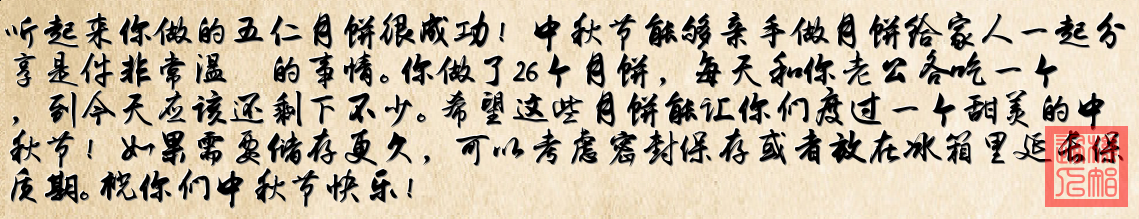 听起来你做的五仁月饼很成功！中秋节能够亲手做月饼给家人一起分
享是件非常温 的事情。你做了26个月饼，每天和你老公各吃一个
，到今天应该还剩下不少。希望这些月饼能让你们度过一个甜美的中
秋节！如果需要储存更久，可以考虑密封保存或者放在冰箱里延长保
质期。祝你们中秋节快乐！